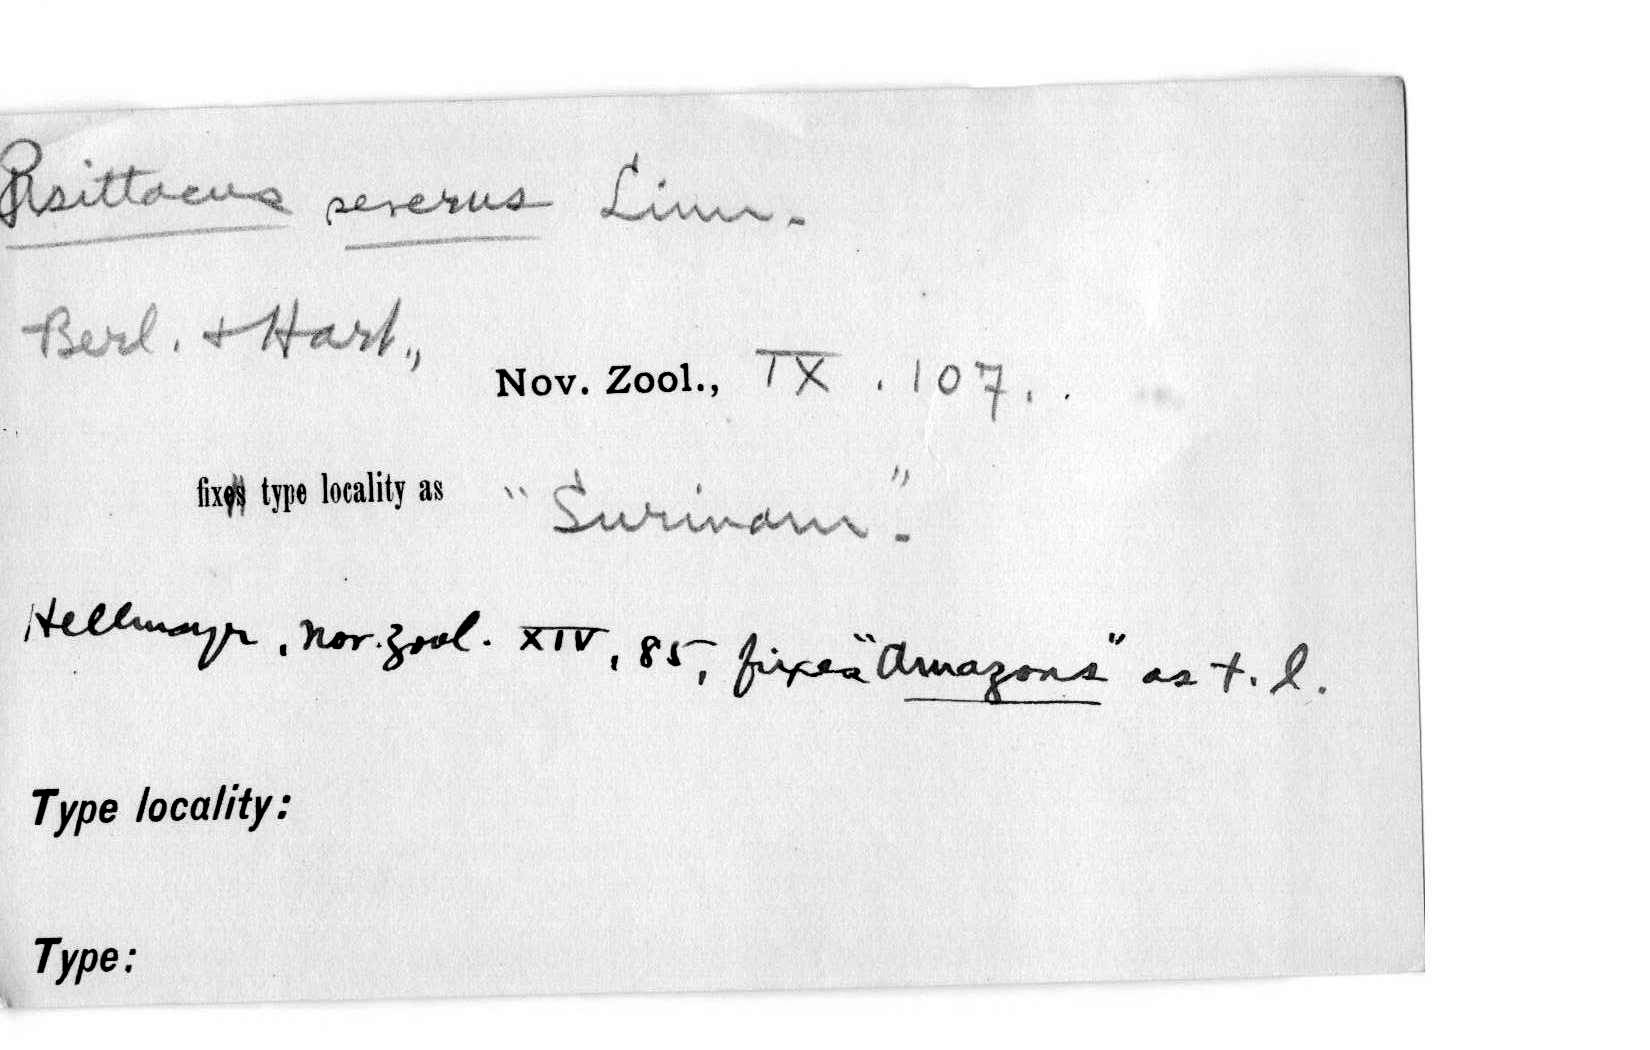 Psittacus severus Linn.
Berl. & Hart., Nov. Zool., IX. 107.
fix type locality as "Surinam".
Hellmayr, Nov. Zool. XIV, 85, fixes "Amazons" as t. l.
Type locality:
Type: